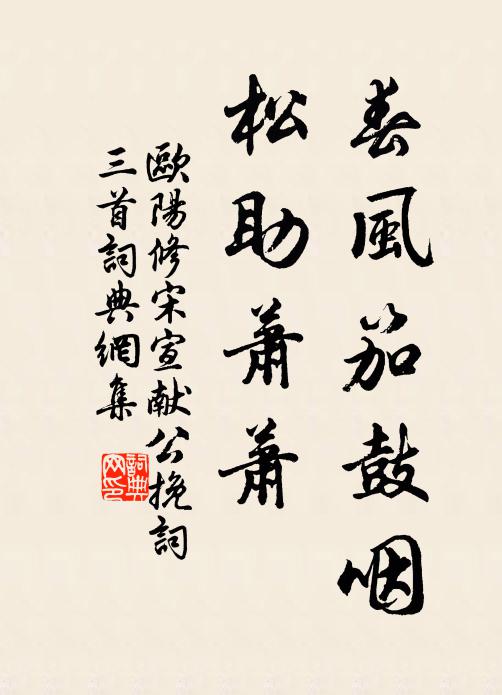 春風笳鼓咽
松助蕭蕭
歐陽修宋宣献公挽詞
三首詞典網集
詞典
网印